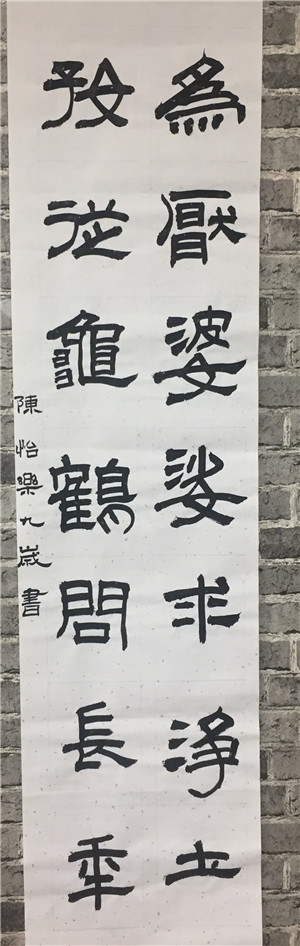 為厭婆娑求淨土
敢從龜鶴問長年
陳怡樂九歲書